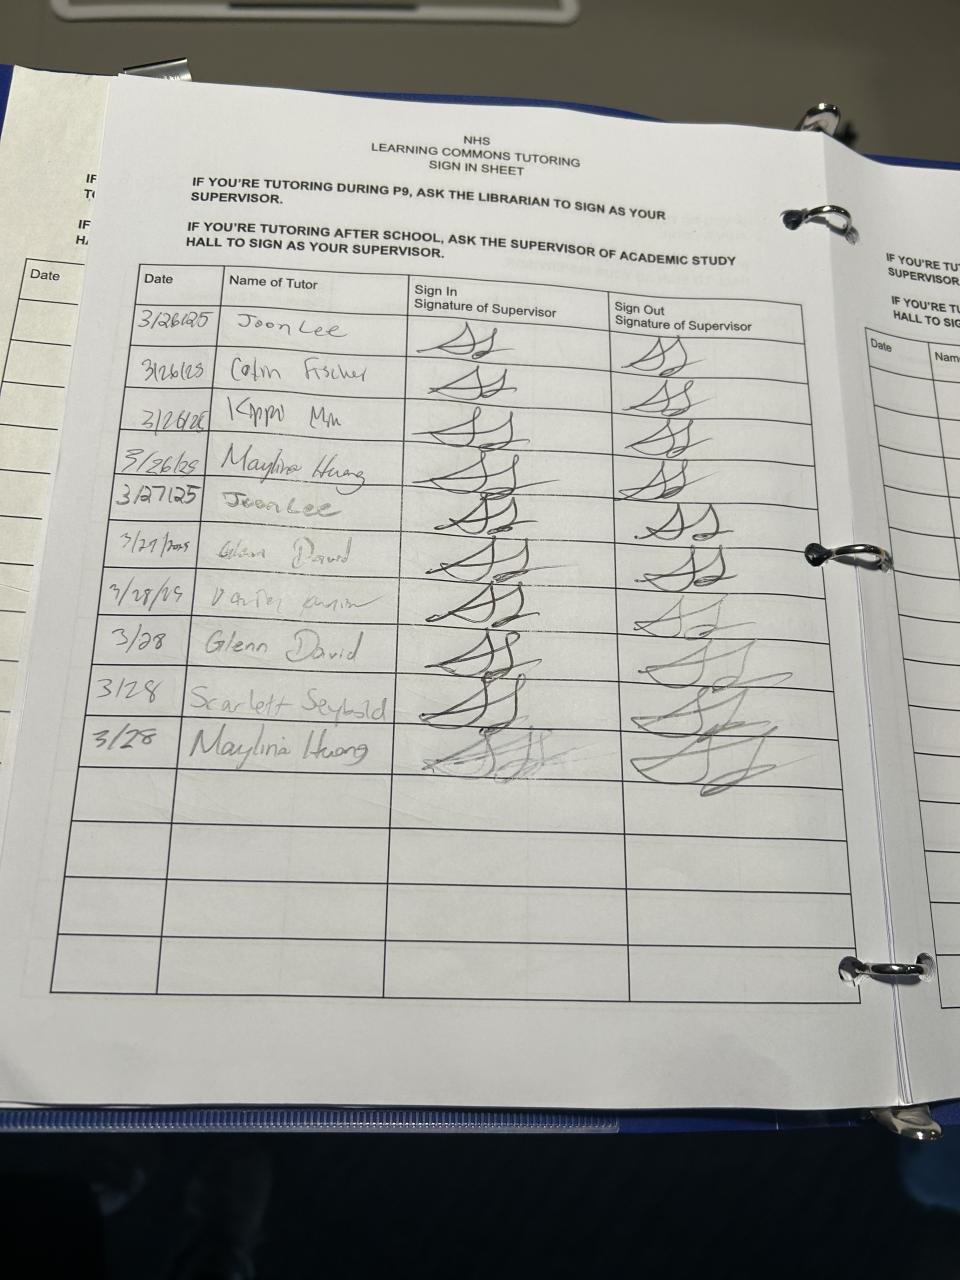 NHS
LEARNING COMMONS TUTORING
SIGN IN SHEET
IF YOU'RE TUTORING DURING P9, ASK THE LIBRARIAN TO SIGN AS YOUR
SUPERVISOR.
IF YOU'RE TUTORING AFTER SCHOOL, ASK THE SUPERVISOR OF ACADEMIC STUDY
HALL TO SIGN AS YOUR SUPERVISOR.
Date Name of Tutor Sign In Signature of Supervisor Sign Out Signature of Supervisor
3/26/25 Joon Lee
3/26/25 Colin Fischer
3/26/25
3/26/25 Maylina Huang
3/27/25 Joon Lee
3/27/2025 Glenn David
3/28/25
3/28 Glenn David
3/28 Scarlett Seybold
3/28 Maylina Huang
IF
TO
IF
HA
Date
IF YOU'RE TU
SUPERVISOR
IF YOU'RE T
HALL TO SIG
Date Nam